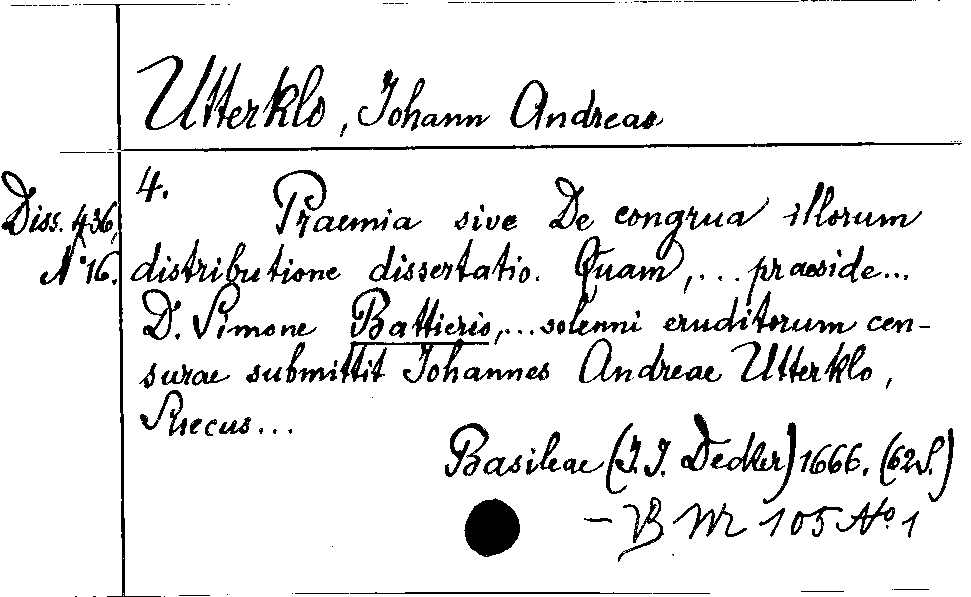 Utterklo, Johann Andreas
4.
Diss. 436,
No 16.
Praemia sive De congrua illorum
distributione dissertatio. Quam, ... praeside ...
D. Simone Battierio, ... solenni eruditorum cen-
surae submittit Johannes Andreae Utterklo,
Suecus ...
Basileae (J. J. Decker) 1666. (62 S.)
– VB Mr 105 No 1